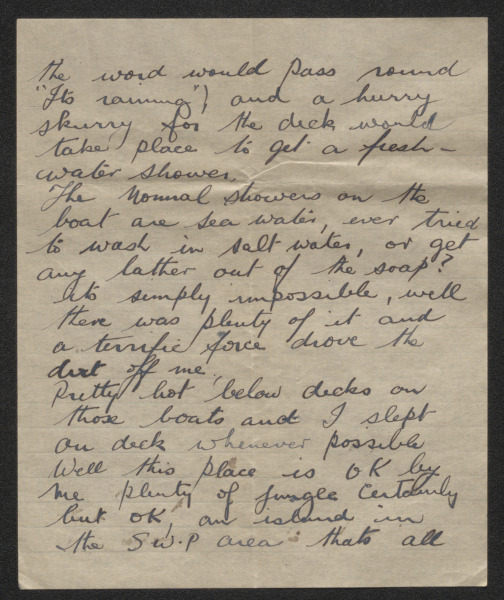 the word would pass round
"Its raining") and a hurry
skurry for the deck would
take place to get a fresh-
water shower.
The Normal showers on the
boat are sea water, ever tried
to wash in salt water, or get
any lather out of the soap?
Its simply impossible, well
there was plenty of it and
a terrific force drove the
dirt off me.
Pretty hot below decks on
those boats and I slept
on deck whenever possible
Well this place is OK by
me plenty of jungle certainly
but OK, an island in
the S.W.P area thats all